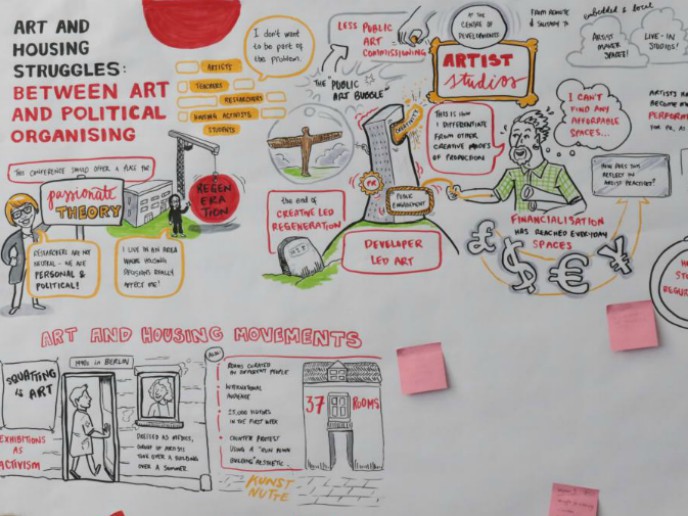 ART AND
HOUSING
STRUGGLES:
BETWEEN ART
AND POLITICAL
ORGANISING
ARTISTS
TEACHERS
RESEARCHERS
HOUSING ACTIVISTS
STUDENTS
I don't want
to be part of
the problem.
THIS CONFERENCE SHOULD OFFER A PLACE FOR
passionate
THEORY
REGEN
ERA
TION
RESEARCHERS ARE NOT
NEUTRAL - WE ARE
PERSONAL &
POLITICAL!
I LIVE IN AN AREA
WHERE HOUSING
DECISIONS REALLY
AFFECT ME!
LESS PUBLIC
ART
COMMISSIONING
THE "PUBLIC
ART BUBBLE"
the end of
CREATIVE LED
REGENERATION
R.I.P
CREATIVITY
PR
PUBLIC
ENGAGEMENT
DEVELOPER
LED ART
AT THE
CENTRE OF
DEVELOPMENTS
ARTIST
studios
FROM REMOTE
& SOLITARY TO
embedded & local
ARTIST
MAKER
SPACES!
LIVE-IN
STUDIOS!
THIS IS HOW
I DIFFERENTIATE
FROM OTHER
CREATIVE MODES
OF PRODUCTION
I CAN'T
FIND ANY
AFFORDABLE
SPACES...
ARTISTS HA
BECOME MO
PERFORM
FOR PR, AS
HOW DOES THIS
REFLECT IN
ARTIST PRACTICES?
FINANCIALISATION
HAS REACHED EVERYDAY
SPACES
£ $ € ¥
HA
ST
REGU
ART AND HOUSING MOVEMENTS
SQUATTING
IS ART
EXHIBITIONS
AS
ACTIVISM
1980s IN BERLIN
DRESSED AS MEDICS,
GROUP OF ARTISTS
TOOK OVER A BUILDING
OVER A SUMMER.
ROOMS CURATED
BY DIFFERENT PEOPLE
INTERNATIONAL
AUDIENCE
VISITORS
IN THE FIRST WEEK
COUNTER PROTEST
USING A "RUN DOWN
BUILDING" AESTHETIC.
KUNST
NUTTE
37 ROOMS